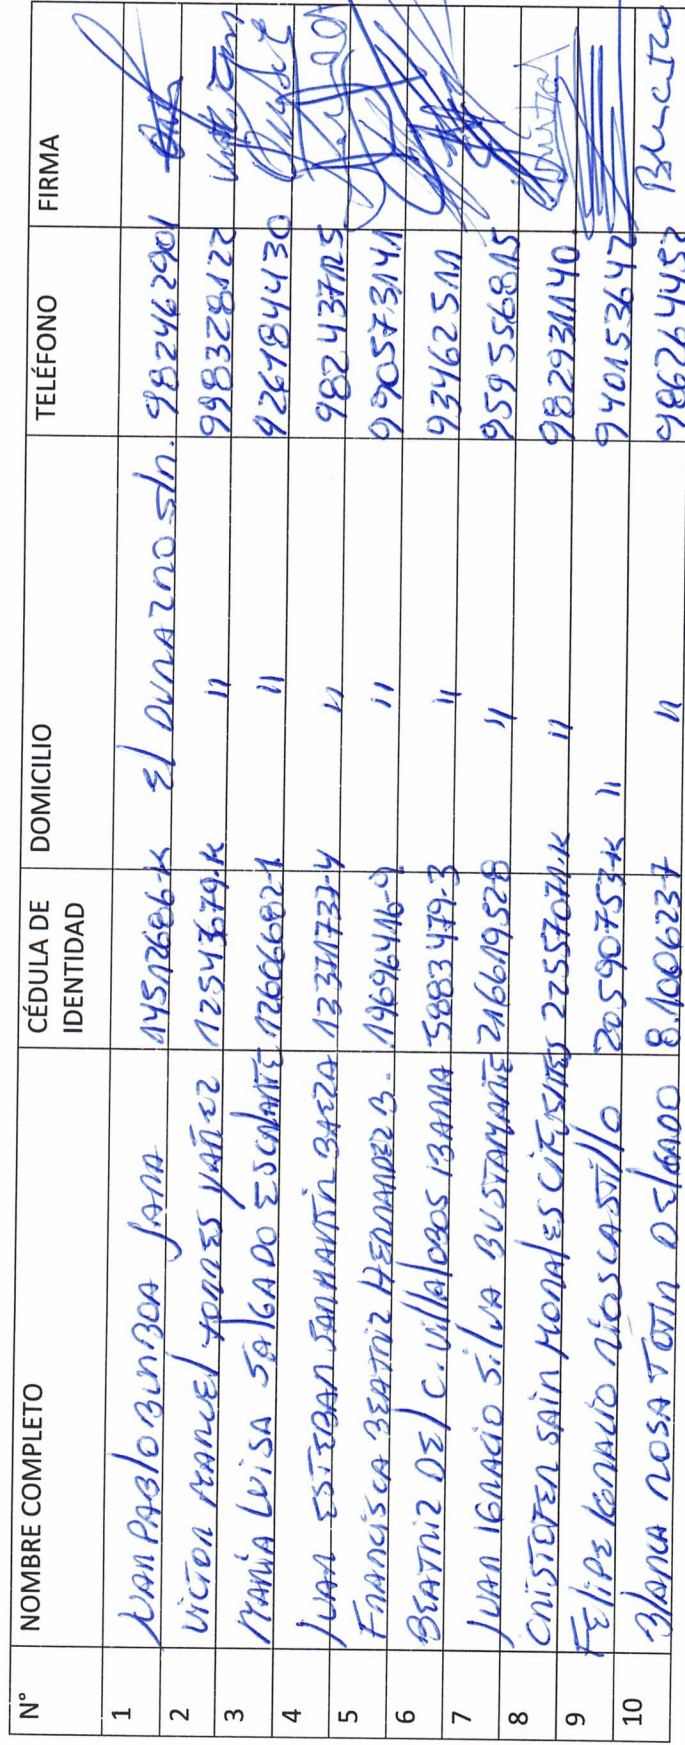 N° NOMBRE COMPLETO CÉDULA DE IDENTIDAD DOMICILIO TELÉFONO FIRMA
1 JUAN PABLO BURBOA JARA 14512686-K El DURAZNO S/n. 982462901
2 VICTOR MANUEL TORRES YAÑEZ 12543679-K " 998328122
3 MARIA LUISA SALGADO ESCALANTE 12606682-1 " 926184430
4 JUAN ESTEBAN SANMARTIN BAEZA 13371737-4 " 982437125
5 FRANCISCA BEATRIZ HERNANDEZ B. 19696416-9 " 990573141
6 BEATRIZ DEL C. VILLALOBOS IBARRA 5883479-3 " 93462511
7 JUAN IGNACIO SILVA BUSTAMANTE 216619528 " 959556815
8 CRISTOFER SAIN MORALES CIFUENTES 22557071-K " 982931140
9 FELIPE IGNACIO RIOS CASTILLO 20590753-K " 940153642
10 BLANCA ROSA TOTIN DELGADO 8.1006237 " 986264452 Blanca